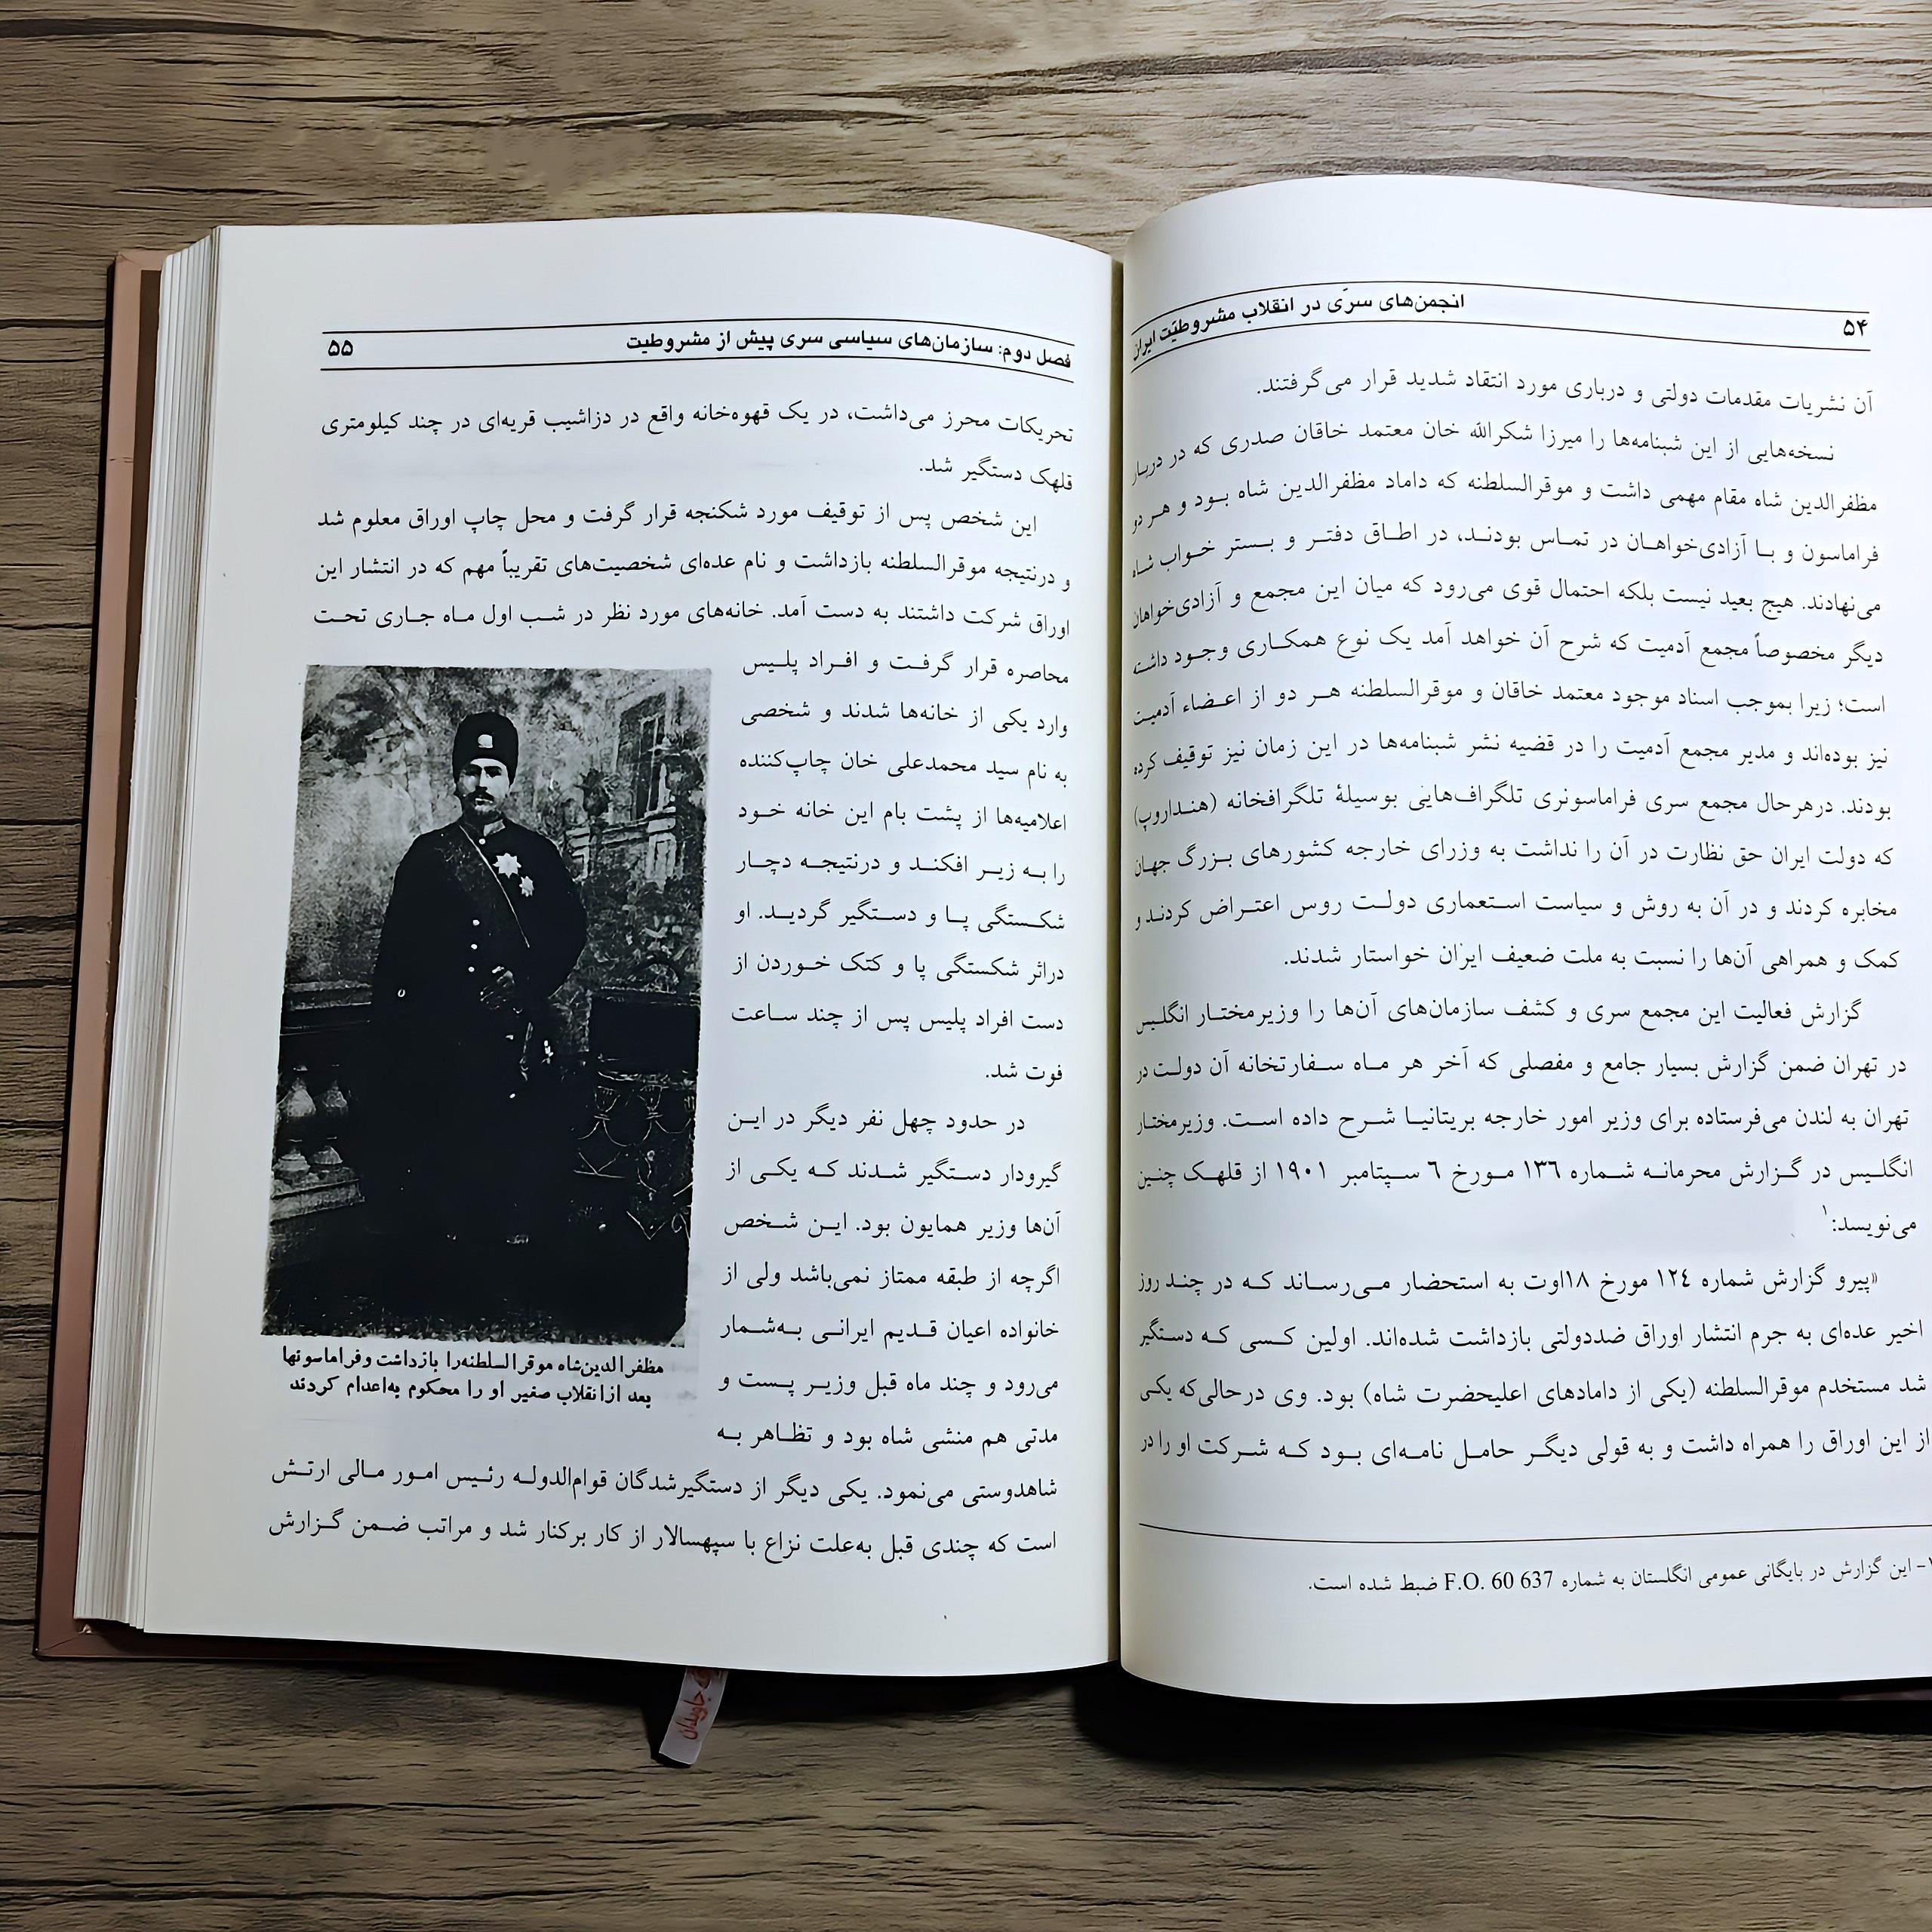 ۵۴
انجمن‌های سرّی در انقلاب مشروطیّت ایران
آن نشریات مقدمات دولتی و درباری مورد انتقاد شدید قرار می‌گرفتند.
نسخه‌هایی از این شبنامه‌ها را میرزا شکرالله خان معتمد خاقان صدری که در دربار
مظفرالدین شاه مقام مهمی داشت و موقرالسلطنه که داماد مظفرالدین شاه بـود و هـر دو
فراماسون و بـا آزادی‌خواهـان در تمـاس بودنـد، در اطـاق دفتـر و بـستر خـواب شـاه
می‌نهادند. هیچ بعید نیست بلکه احتمال قوی می‌رود که میان این مجمع و آزادی‌خواهان
دیگر مخصوصاً مجمع آدمیت که شرح آن خواهد آمد یک نوع همکـاری وجـود داشت
است؛ زیرا بموجب اسناد موجود معتمد خاقان و موقرالسلطنه هـر دو از اعـضاء آدمیـت
نیز بوده‌اند و مدیر مجمع آدمیت را در قضیه نشر شبنامه‌ها در این زمان نیز توقیف کرده
بودند. درهرحال مجمع سری فراماسونری تلگراف‌هایی بوسیلهٔ تلگرافخانه (هنـداروپ)
که دولت ایران حق نظارت در آن را نداشت به وزرای خارجه کشورهای بـزرگ جهان
مخابره کردند و در آن به روش و سیاست اسـتعماری دولـت روس اعتـراض کردنـد و
کمک و همراهی آن‌ها را نسبت به ملت ضعیف ایران خواستار شدند.
گزارش فعالیت این مجمع سری و کشف سازمان‌های آن‌ها را وزیرمختـار انگلـیس
در تهران ضمن گزارش بسیار جامع و مفصلی که آخر هر مـاه سـفارتخانه آن دولـت در
تهران به لندن می‌فرستاده برای وزیر امور خارجه بریتانیـا شـرح داده اسـت. وزیرمختـار
انگلـیس در گـزارش محرمانـه شـماره ۱۳۶ مـورخ ۶ سـپتامبر ۱۹۰۱ از قلهـک چنین
می‌نویسد:۱
«پیرو گزارش شماره ۱۲۴ مورخ ۱۸اوت به استحضار مـی‌رسـاند کـه در چنـد روز
اخیر عده‌ای به جرم انتشار اوراق ضددولتی بازداشت شده‌اند. اولین کـسی کـه دستگیر
شد مستخدم موقرالسلطنه (یکی از دامادهای اعلیحضرت شاه) بود. وی درحالی‌که یکی
از این اوراق را همراه داشت و به قولی دیگـر حامـل نامـه‌ای بـود کـه شـرکت او را در
۱- این گزارش در بایگانی عمومی انگلستان به شماره F.O. 60 637 ضبط شده است.
فصل دوم: سازمان‌های سیاسی سری پیش از مشروطیت
۵۵
تحریکات محرز می‌داشت، در یک قهوه‌خانه واقع در دزاشیب قریه‌ای در چند کیلومتری
قلهک دستگیر شد.
این شخص پس از توقیف مورد شکنجه قرار گرفت و محل چاپ اوراق معلوم شد
و درنتیجه موقرالسلطنه بازداشت و نام عده‌ای شخصیت‌های تقریباً مهم که در انتشار این
اوراق شرکت داشتند به دست آمد. خانه‌های مورد نظر در شـب اول مـاه جـاری تحـت
محاصره قرار گرفـت و افـراد پلـیس
وارد یکی از خانه‌ها شدند و شخصی
به نام سید محمدعلی خان چاپ‌کننده
اعلامیه‌ها از پشت بام این خانه خـود
را بـه زیـر افکنـد و درنتیجـه دچـار
شکـستگی پـا و دسـتگیر گردیـد. او
دراثر شکستگی پا و کتک خـوردن از
دست افراد پلیس پس از چند سـاعت
فوت شد.
در حدود چهل نفر دیگر در ایـن
گیرودار دسـتگیر شـدند کـه یکـی از
آن‌ها وزیر همایون بود. ایـن شـخص
اگرچه از طبقه ممتاز نمی‌باشد ولی از
خانواده اعیان قـدیم ایرانـی بـه‌شـمار
می‌رود و چند ماه قبل وزیـر پـست و
مدتی هم منشی شاه بود و تظـاهر بـه
شاهدوستی می‌نمود. یکی دیگر از دستگیرشدگان قوام‌الدولـه رئـیس امـور مـالی ارتـش
است که چندی قبل به‌علت نزاع با سپهسالار از کار برکنار شد و مراتب ضـمن گـزارش
مظفرالدین‌شاه موقرالسلطنه‌را بازداشت وفراماسونها
بعد ازانقلاب صغیر او را محکوم به‌اعدام کردند
جاویدان